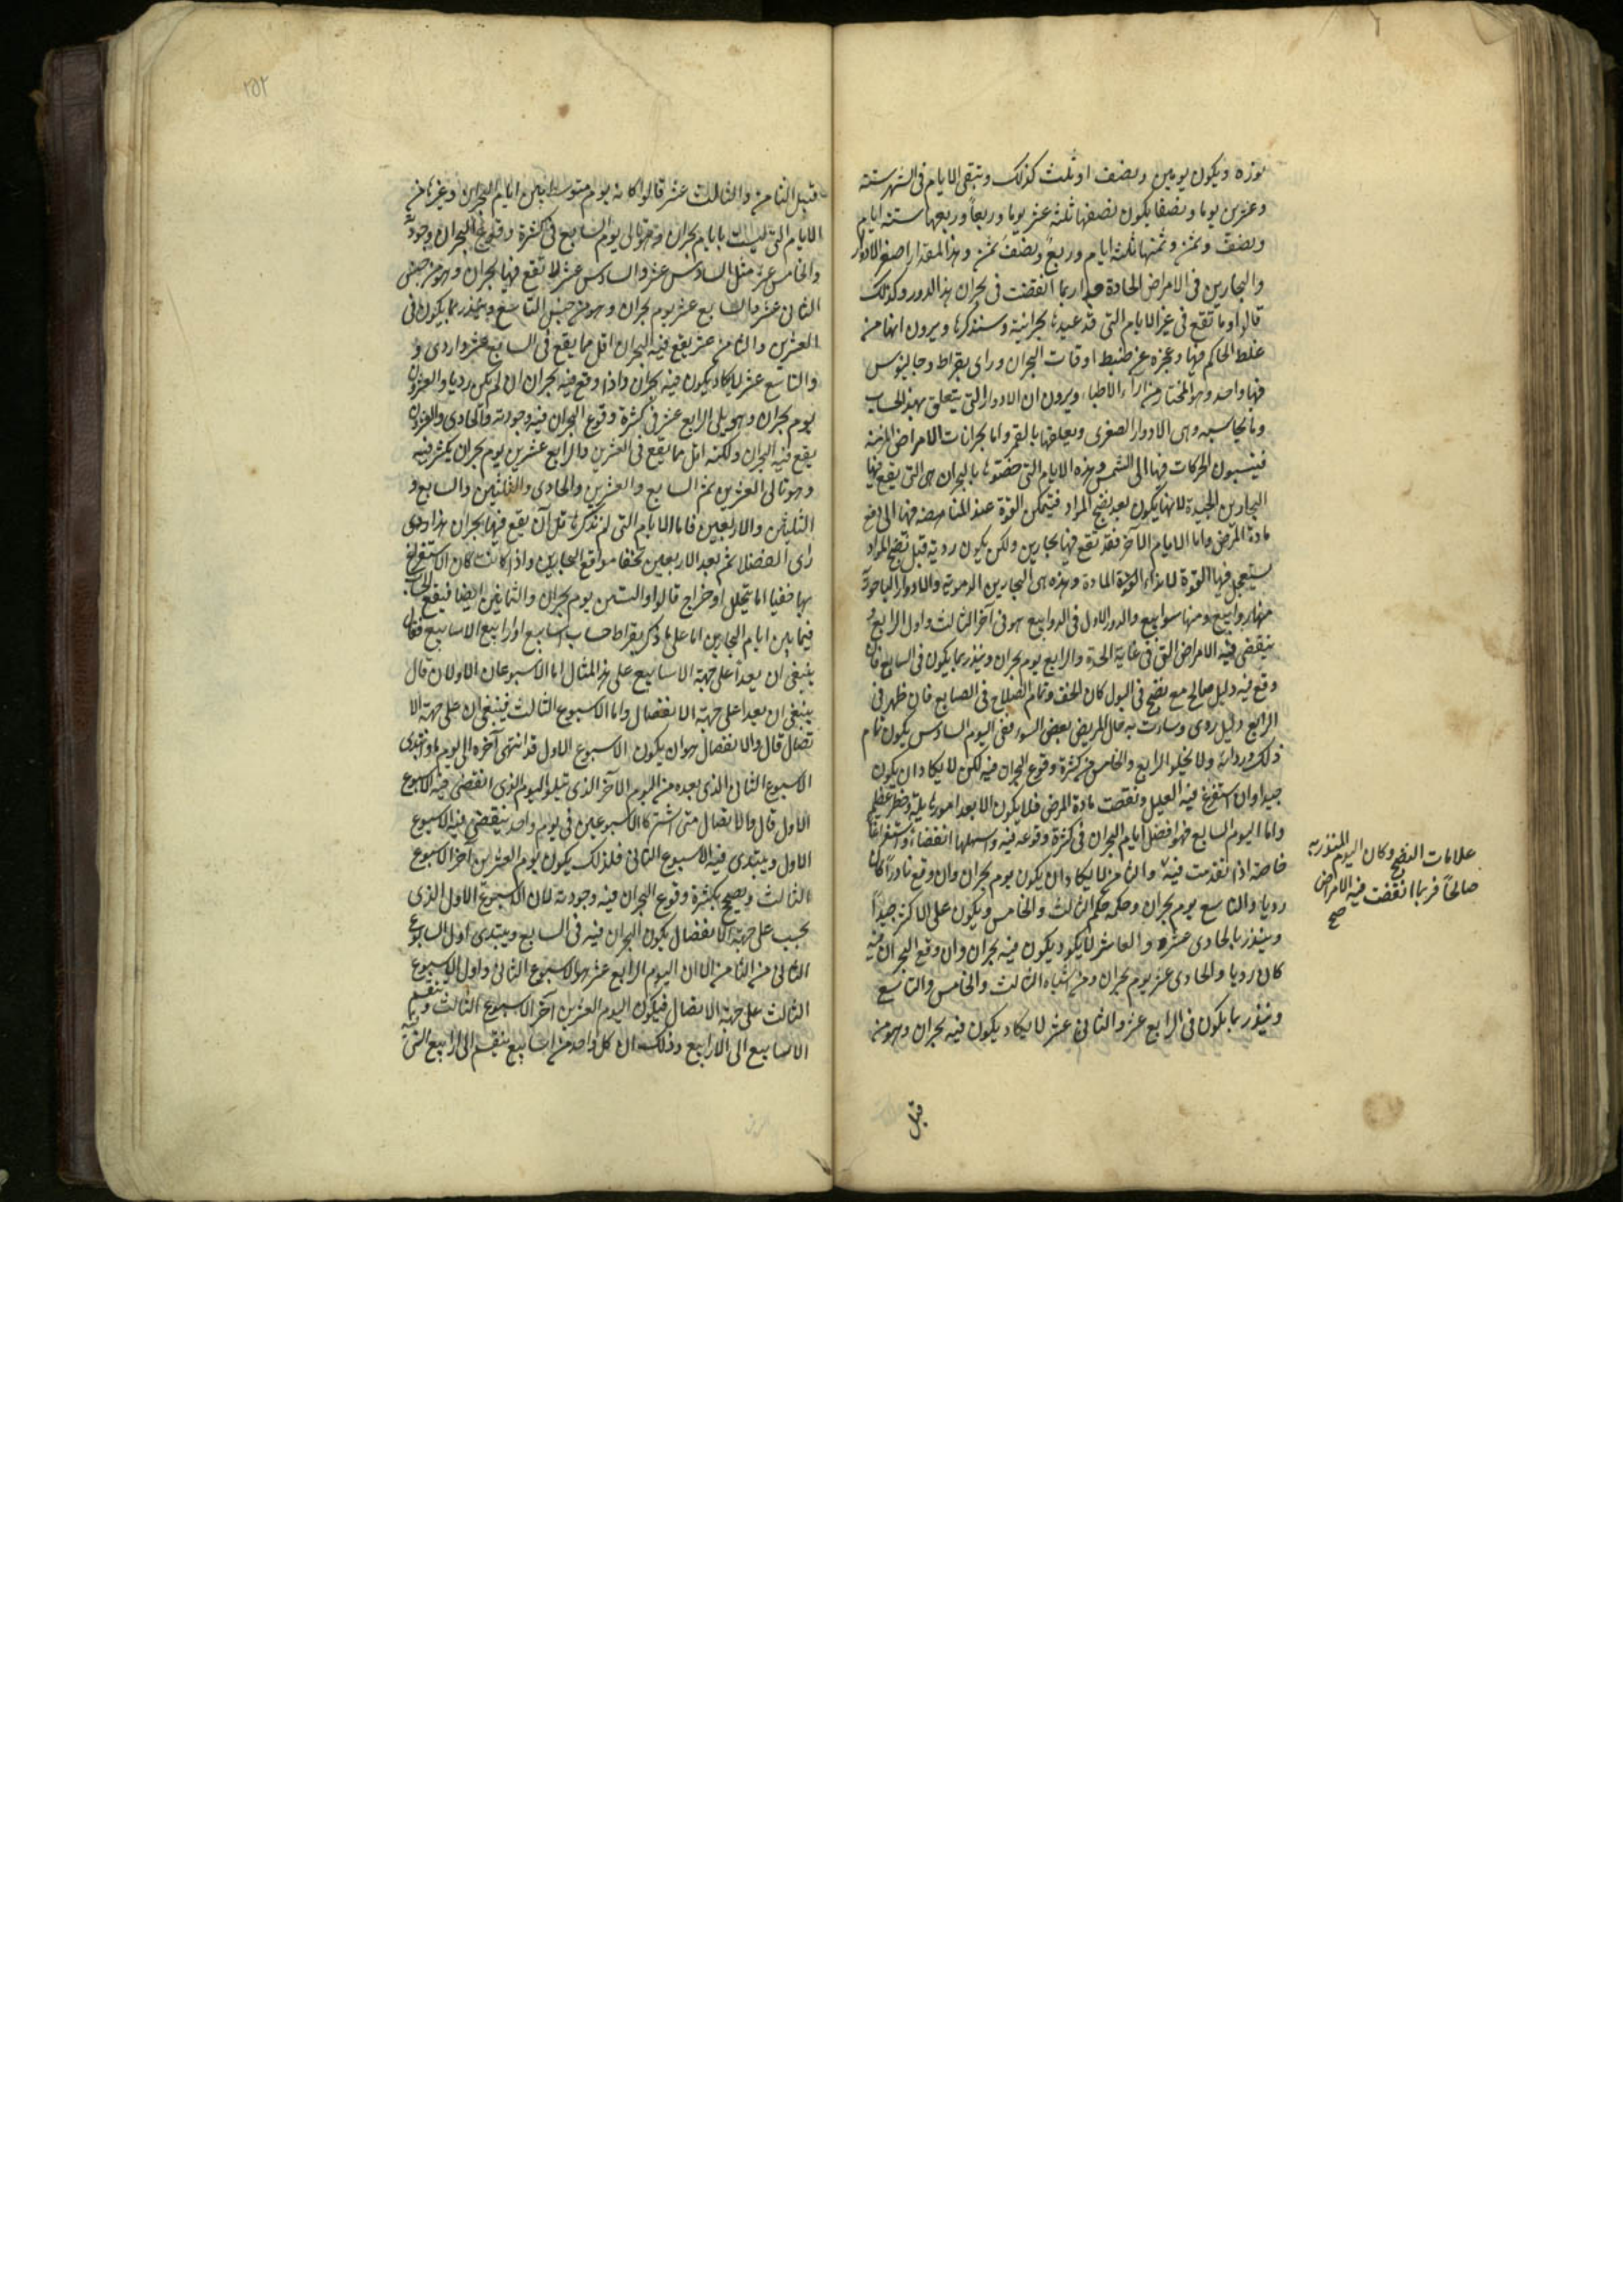 نوره ويكون يومين ونصف او ثلث كذلك وتبقى الايام فى الشهر ستة
وعشرين يوما ونصفا يكون نصفها ثلثة عشر يوما وربعا وربعها ستة ايام
ونصف وثمن وثمنها ثلثة ايام وربع ونصف ثمن وهذا المقدار اصغر الادوار
والبحارين فى الامراض الحادة جدا ربما انقضت فى بحران هذا الدور وكذلك
قالوا وما تقع فى غير الايام التى قد عيدها بحرانية وسنذكرها ويرون انها من
غلط الحاكم فيها وعجزه عن ضبط اوقات البحران وراى بقراط وجالينوس
فيها واحد وهو المختار من اراء الاطباء ويرون ان الادوار التى يتعلق بهذ الحساب
وما يجانسه وهى الادوار الصغرى وتعلقها بالقمر واما بحرانات الامراض المزمنة
فينسبون الحركات فيها الى الشمس وهذه الايام التى خصتوها بالبحران هى التى يقع فيها
البحارين الجيدة لانها يكون بعد نضج المواد فيتمكن القوة عند المناهضة فيها الى دفع
مادة المرض واما الايام الآخر فقد تقع فيها بحارين ولكن يكون ردية قبل نضج المواد
يستعجل فيها القوة لايذاء المادة وهذه هى البحارين المذمومة والادوار الباحورية
منها روابيع ومنها سوابيع والدور الاول فى الروابيع هو فى آخر الثالث واول الرابع و
ينقضى فيه الامراض التى فى غاية الحدة والرابع يوم بحران وينذر بما يكون فى السابع فان
وقع فيه دليل صالح مع نضج فى البول كان الخف وتمام الصلاح فى السابع فان ظهر فى
الرابع دليل ردى وساءت به حال المريض بعض السوء ففى اليوم السادس يكون تمام
ذلك ورداءته ولا يخلو الرابع والخامس من كثرة وقوع البحران فيه لكن لا يكاد ان يكون
جيدا وان استفرغ فيه العليل ونقصت مادة المرض فلا يكون الا بعد امور هايلة وخطر عظيم
واما اليوم السابع فهو افضل ايام البحران فى كثرة وقوعه فيه واسهلها انقضاء واستفراغا
خاصة اذا تقدمت فيه والثامن لا يكاد ان يكون يوم بحران وان وقع نادرا كان
رديا والتاسع يوم بحران وحكمه حكم الثالث والخامس ويكون على الاكثر جيدا
وينذر بالحادى عشر والعاشر لا يكود يكون فيه بحران وان وقع البحران فيه
كان رديا والحادى عشر يوم بحران ومن اشباه الثالث والخامس والتاسع
وينذر بما يكون فى الرابع عشر والثانى عشر لا يكاد يكون فيه بحران وهو من
قبل
علامات النضج وكان اليوم المنذر به
صالحا فربما انقضت فيه الامراض
صح
١٥٢
قبيل الثامن والثالث عشر قالوا كانه يوم متوسط بين ايام البحران وغيرها من
الايام التى ليست بايام بحران وهو تالى يوم السابع فى كثرة وقوع البحران وجودته
والخامس عشر مثل السادس عشر والسادس عشر لا تقع فيها بحران وهو من جنس
الثانى عشر والسابع عشر يوم بحران وهو من جنس التاسع وينذر بما يكون فى
العشرين والثامن عشر يقع فيه البحران اقل مما يقع فى السابع عشر واردى و
والتاسع عشر لا يكاد يكون فيه بحران واذا وقع فيه بحران ان لم يكن رديا والعشرون
يوم بحران وهو يلى الرابع عشر فى كثرة وقوع البحران فيه وجودته والحادى والعشرون
يقع فيه البحران ولكنه اقل مما يقع فى العشرين والرابع عشرين يوم بحران يكثر فيه
وهو تالى العشرين ثم السابع والعشرين والحادى والثلثين والسابع و
الثلثين والاربعين فاما الايام التى لم نذكرها قل ان يقع فيها بحران هذا هى
راى الفضلا ثم بعد الاربعين تخفا مواقع البحارين واذا كانت كان الاستفراغ
بها خفيا اما بتحلل او خراج قالوا والستين يوم بحران والثمانين ايضا فيقع الحساب
فيما بين ايام البحارين اما على ما ذكر بقراط حساب اسابيع او ارابيع الاسابيع فقال
ينبغى ان يعدا على جهة الاسابيع على هذا المثال اما الاسبوعان الاولان قال
ينبغى ان يعدا على جهة الانفصال واما الاسبوع الثالث فينبغى ان على جهة الا
تصال قال والانفصال هو ان يكون الاسبوع الاول قد انتهى آخره الى يوم وابتدى
الاسبوع الثانى الذى بعده من اليوم الآخر الذى يتلو اليوم الذى انقضى فيه الاسبوع
الاول قال والاتصال متى اشتركا الاسبوعين فى يوم واحد ينقضى فيه الاسبوع
الاول ويبتدى فيه الاسبوع الثانى فلذلك يكون يوم العشرين آخر الاسبوع
الثالث ويصح بكثرة وقوع البحران فيه وجودته لان الاسبوع الاول الذى
يحسب على جهة الانفصال يكون البحران فيه فى السابع ويبتدى اول السابوع
الثانى من الثامن الى ان اليوم الرابع عشر هو الاسبوع الثانى واول الاسبوع
الثالث على جهة الاتصال فيكون اليوم العشرين آخر الاسبوع الثالث وينقسم
الاسابيع الى الارابيع وذلك ان كل واحد من اسابيع ينقسم الى ارابيع التى